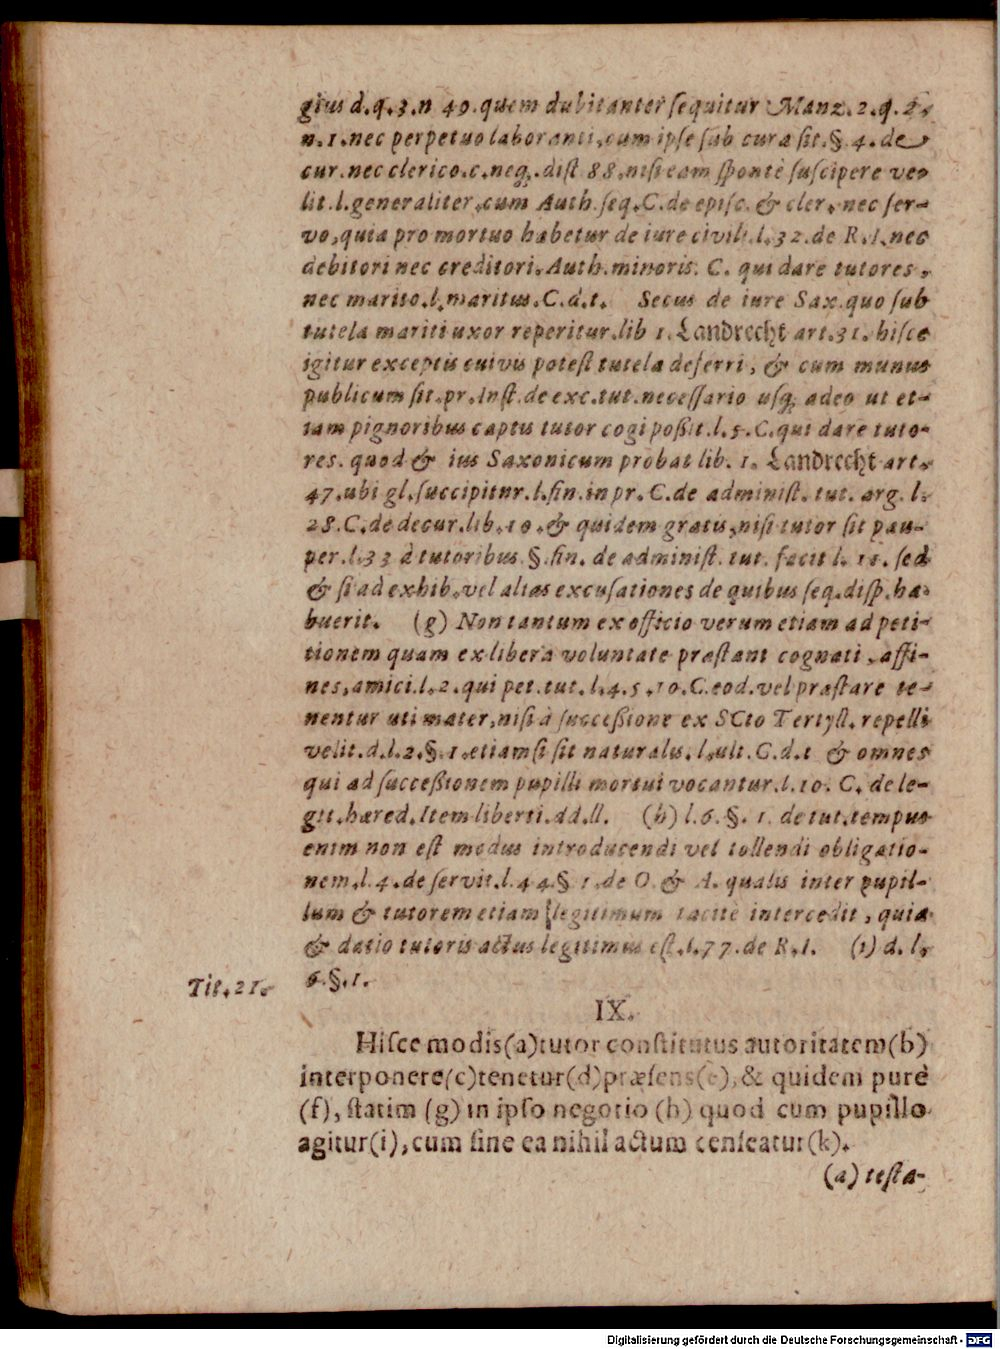 gius d.q.3.n 49.quem dubitanter ſequitur Manz.2.q.2.
n.1.nec perpetuo laboranti,cum ipſe ſub cura ſit.§.4.de
cur.nec clerico.c.neq;.diſt 88.niſi eam ſpontè ſuſcipere ve-
lit.l.generaliter,cum Auth.ſeq.C.de epiſc.& cler.nec ſer-
vo,quia pro mortuo habetur de iure civili.l.32.de R.I.nec
debitori nec creditori.Auth.minoris. C. qui dare tutores.
nec marito.l.maritus.C.d.t. Secus de iure Sax.quo ſub
tutela mariti uxor reperitur.lib 1. Landrecht art.31.hiſce
igitur exceptis cuivis poteſt tutela deferri, & cum munus
publicum ſit.pr.Inſt.de exc.tut.neceſſario uſq; adeo ut et-
iam pignoribus captis tutor cogi poßit.l.5.C.qui dare tuto-
res. quod & ius Saxonicum probat lib. 1. Landrecht art.
47.ubi gl.ſuccipitur.l.fin.in pr.C.de adminiſt. tut. arg. l.
28.C.de decur.lib.10.& quidem gratis,niſi tutor ſit pau-
per.l.33 à tutoribus.§.fin. de adminiſt. tut. facit l. 15. ſed
& ſi ad exhib.vel alias excuſationes de quibus ſeq.diſp.ha-
buerit. (g) Non tantum ex officio verum etiam ad peti-
tionem quam ex libera voluntate præſtant cognati, affi-
nes,amici.l.2.qui pet.tut.l.4.5.10.C.eod.vel præſtare te-
nentur uti mater,niſi à ſucceßione ex SCto Tertyll.repelli
velit.d.l.2.§.1.etiamſi ſit naturalis.l.ult.C.d.t & omnes
qui ad ſucceßionem pupilli mortui vocantur.l.10. C. de le-
git.hæred.Item liberti.dd.ll. (h) l.6.§. 1. de tut.tempus
enim non eſt modus introducendi vel tollendi obligatio-
nem.l.4.de ſervit.l.44.§ 1.de O. & A. qualis inter pupil-
lum & tutorem etiam legitimum tacitè intercedit, quia
& datio tutoris actus legitimus eſt.l.77.de R.I. (i) d. l.
6.§.1.
Tit.21.
IX.
Hiſce modis(a)tutor conſtitutus autoritatem(b)
interponere(c)tenetur(d)præſens(e),& quidem purè
(f), ſtatim (g) in ipſo negotio (h) quod cum pupillo
agitur(i),cum ſine ea nihil actum cenſeatur(k).
(a) teſta-
Digitalisierung gefördert durch die Deutsche Forschungsgemeinschaft - DFG